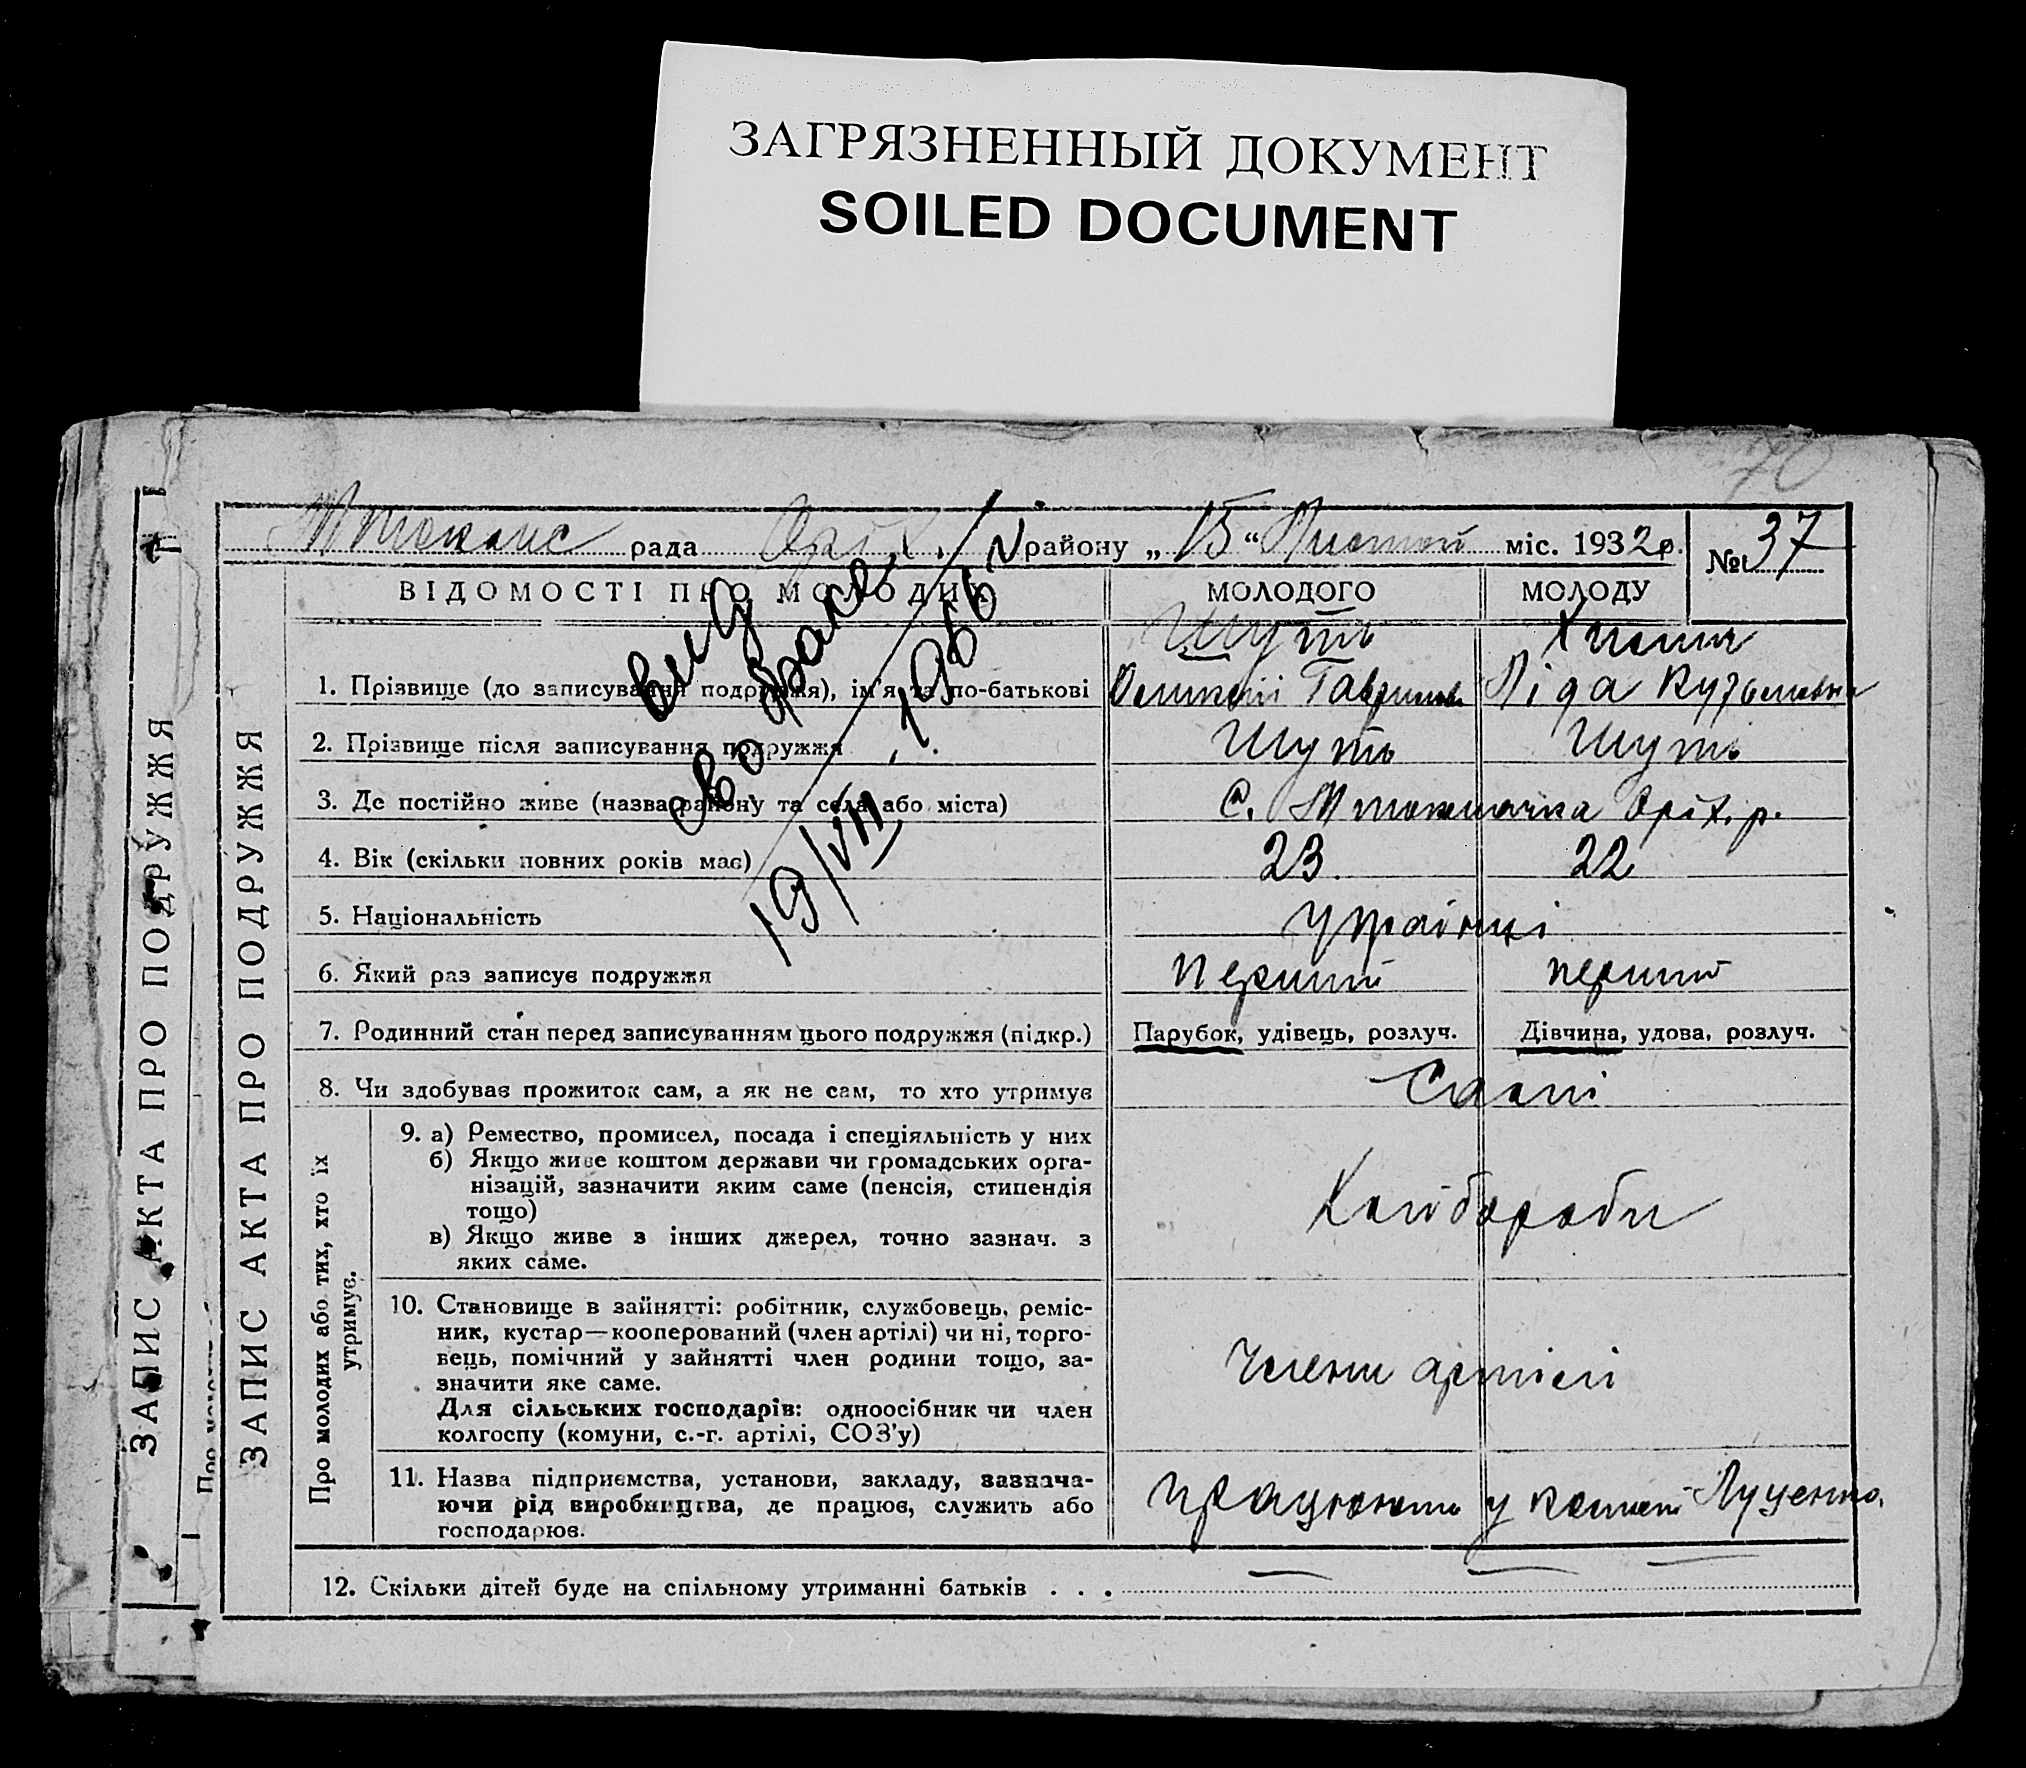 ЗАГРЯЗНЕННЫЙ ДОКУМЕНТ
SOILED DOCUMENT
70
рада району „ 15 “ міс. 1932 р. № 37
ВІДОМОСТІ ПРО МОЛОДИХ МОЛОДОГО МОЛОДУ
Шуть
1. Прізвище (до записування подружжя), ім'я та по-батькові Ліда Кузьмовна
2. Прізвище після записування подружжя Шуть Шуть
3. Де постійно живе (назва району та села або міста) с. Оріх. р.
4. Вік (скільки повних років має) 23. 22
5. Національність Українці
6. Який раз записує подружжя перший перший
7. Родинний стан перед записуванням цього подружжя (підкр.) Парубок, удівець, розлуч. Дівчина, удова, розлуч.
8. Чи здобуває прожиток сам, а як не сам, то хто утримує Самі
9. а) Ремество, промисел, посада і спеціяльність у них
б) Якщо живе коштом держави чи громадських орга-
нізацій, зазначити яким саме (пенсія, стипендія
тощо)
в) Якщо живе з інших джерел, точно зазнач. з
яких саме.
Хлібороби
10. Становище в зайнятті: робітник, службовець, реміс-
ник, кустар—кооперований (член артілі) чи ні, торго-
вець, помічний у зайнятті член родини тощо, за-
значити яке саме.
Для сільських господарів: одноосібник чи член
колгоспу (комуни, с.-г. артілі, СОЗ'у)
Члени артілі
11. Назва підприємства, установи, закладу, зазнача-
ючи рід виробництва, де працює, служить або
господарює.
працюють у Луценко.
12. Скільки дітей буде на спільному утриманні батьків . . . — — —
Про молодих або тих, хто їх
утримує.
ЗАПИС АКТА ПРО ПОДРУЖЖЯ
ЗАПИС АКТА ПРО ПОДРУЖЖЯ
выд
св о браке
19/VII 1966